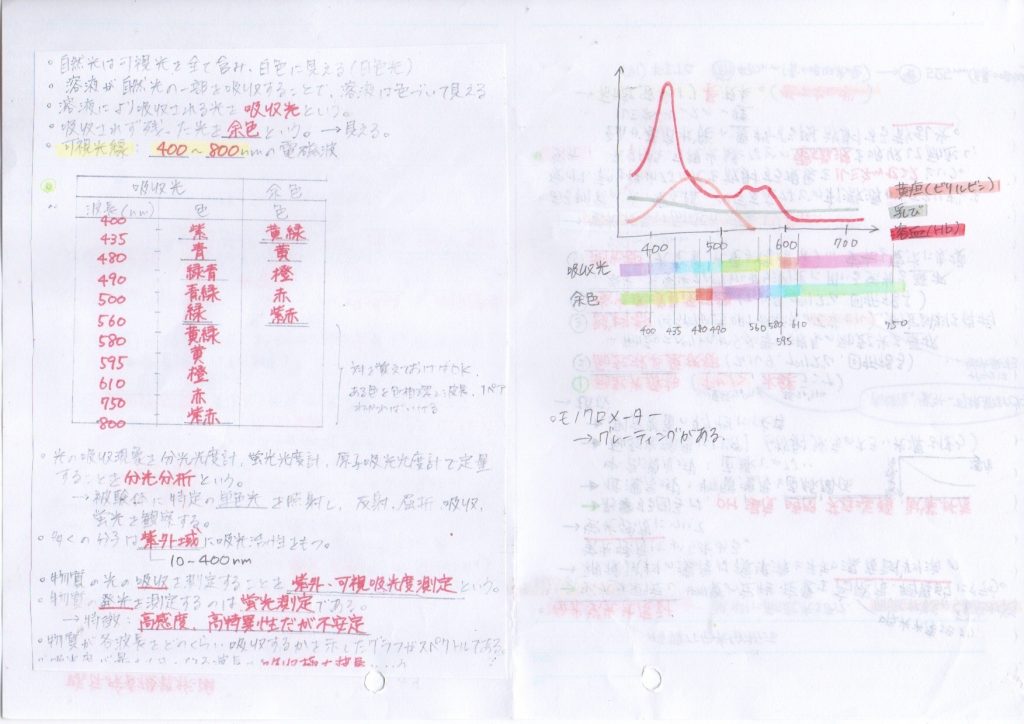 ・自然光は可視光を全て含み、白色に見える(白色光)
・溶液が自然光の一部を吸収することで、溶液は色づいて見える
・溶液により吸収される光を吸収光という。
・吸収されず残った光を余色という。→見える。
・可視光線: 400~800nmの電磁波
吸収光 余色
波長(nm) 色 色
400
紫 黄緑
435
青 黄
480
緑青 橙
490
青緑 赤
500
緑 紫赤
560
黄緑
580
黄
595
橙
610
赤
750
紫赤
800
・光の吸収現象を分光光度計、蛍光光度計、原子吸光光度計で定量
することを分光分析という。
→被験体に特定の単色光を照射し、反射、屈折、吸収、
蛍光を観察する。
・多くの分子は紫外域に吸光活性をもつ。
10~400nm
・物質の光の吸収を測定することを紫外・可視吸光度測定という。
・物質の発光を測定するのは蛍光測定である。
→特徴: 高感度、高特異性だが不安定
・物質が各波長をどのくらい吸収するかを示したグラフがスペクトルである。
吸収極大波長
黄疸(ビリルビン)
乳び
溶血(Hb)
400 500 600 700
吸収光
余色
400 435 480 490 560 580 595 610 750
・モノクロメーター
→グレーティングがある。